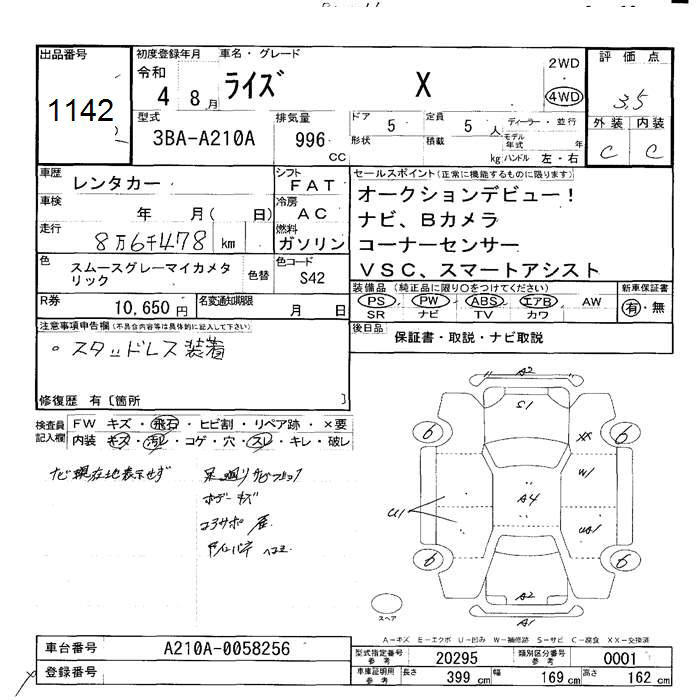 出品番号
1142
初度登録年月
車名・グレード
令和
4 8月
ライズ
X
2WD
4WD
評価点
3.5
型式
3BA-A210A
排気量
996
CC
ドア
5
定員
5
人
ディーラー・並行
形状
積載
kg
モデル年式
年
ハンドル 左・右
外装 内装
C C
車歴
レンタカー
シフト
FAT
車検
年 月( 日)
冷房
AC
走行
8万6千478 km
燃料
ガソリン
色
スムースグレーマイカメタ
リック
色替
色コード
S42
セールスポイント(正常に機能するものに限ります)
オークションデビュー!
ナビ、Bカメラ
コーナーセンサー
VSC、スマートアシスト
装備品 (純正品に限り○をつけてください)
新車保証書
PS PW ABS エアB AW
有・無
SR ナビ TV カワ
R券
10,650円
名変通知期限
月 日
後日品
保証書・取説・ナビ取説
注意事項申告欄(不具合内容等は具体的に記入して下さい)
○スタッドレス装着
修復歴 有〔箇所 〕
検査員
記入欄
FW キズ・飛石・ヒビ割・リペア跡・×要
内装 キズ・汚レ・コゲ・穴・スレ・キレ・破レ
ナビ現在地表示せず
足廻りサビ
ボデーキズ
A2
S1
6
6
XX
W1
A4
U1
6
6
A2
A1
スペア
A-キズ E-エクボ U-凹み W-補修跡 S-サビ C-腐食 XX-交換済
車台番号
A210A-0058256
登録番号
型式指定番号
参考
20295
類別区分番号
参考
0001
車庫証明用
参考
長さ
399 cm
幅
169 cm
高さ
162 cm